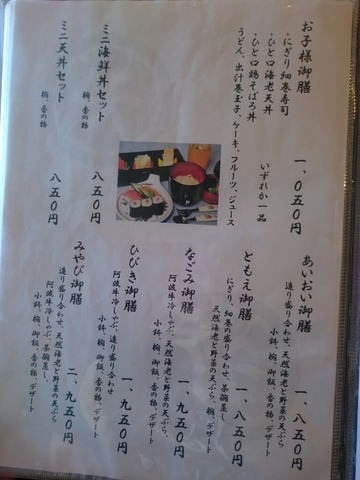 お子様御膳 一、〇五〇円
・にぎり 細巻寿司
・ひと口海老天丼
・ひと口鶏そぼろ丼
いずれか一品
うどん、出汁巻玉子、ケーキ、フルーツ、ジュース
ミニ海鮮丼セット 八五〇円
椀、香の物
ミニ天丼セット 八五〇円
椀、香の物
あいおい御膳 一、八五〇円
造り盛り合わせ、天然海老と野菜の天ぷら
小鉢、椀、御飯、香の物、デザート
ともえ御膳 一、八五〇円
にぎり、細巻の盛り合わせ、茶碗蒸し
天然海老と野菜の天ぷら、椀、デザート
なごみ御膳 一、九五〇円
阿波牛冷しゃぶ、天然海老と野菜の天ぷら
小鉢、椀、御飯、香の物、デザート
ひびき御膳 一、九五〇円
阿波牛冷しゃぶ、造り盛り合わせ
小鉢、椀、御飯、香の物、デザート
みやび御膳 二、九五〇円
造り盛り合わせ、天然海老と野菜の天ぷら
阿波牛冷しゃぶ、茶碗蒸し
小鉢、椀、御飯、香の物、デザート